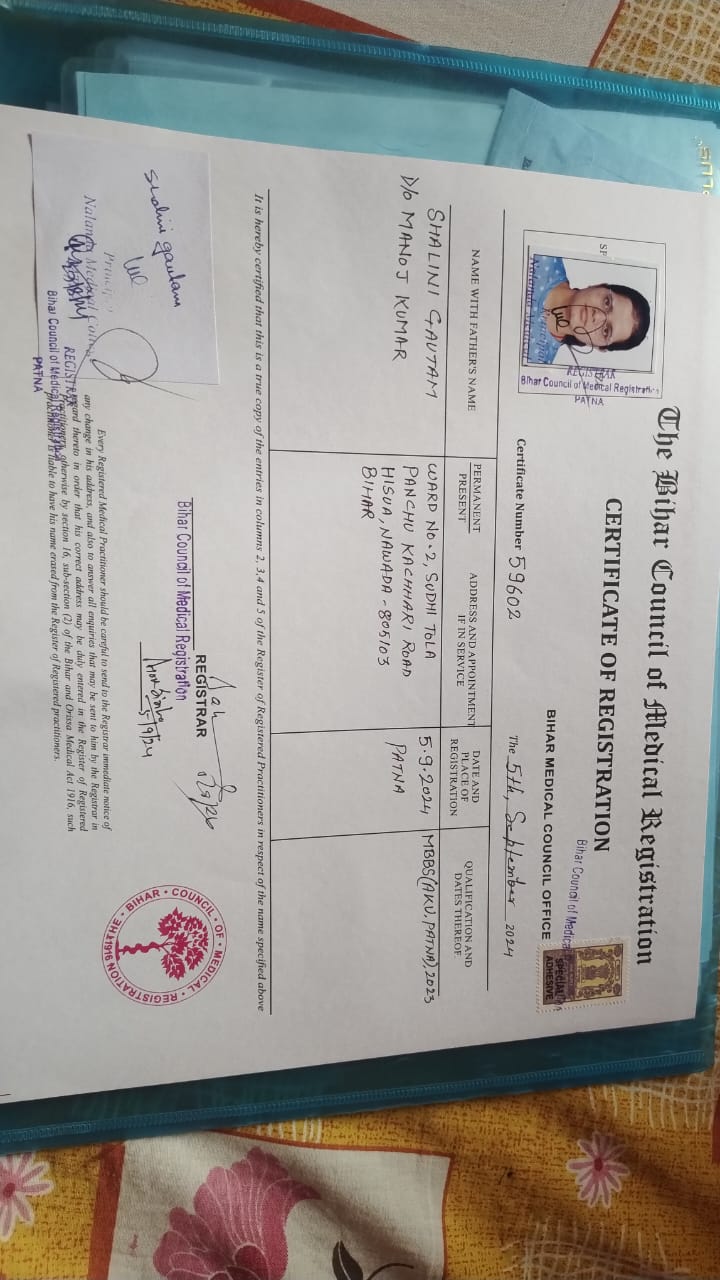 The Bihar Council of Medical Registration
CERTIFICATE OF REGISTRATION
Bihar Council of Medical
SPECIAL
ADHESIVE
BIHAR MEDICAL COUNCIL OFFICE
REGISTRAR
Bihar Council of Medical Registration
PATNA
Principal
Nalanda Medical
Certificate Number 59602
The 5th, September 2024
NAME WITH FATHER'S NAME
PERMANENT
PRESENT
ADDRESS AND APPOINTMENT
IF IN SERVICE
DATE AND
PLACE OF
REGISTRATION
QUALIFICATION AND
DATES THEREOF.
SHALINI GAUTAM
D/o MANOJ KUMAR
WARD NO.2, SUDHI TOLA
PANCHU KACHHARI ROAD
HISUA, NAWADA - 805103
BIHAR
5.9.2024
PATNA
MBBS (AKU, PATNA), 2023
It is hereby certified that this is a true copy of the entries in columns 2, 3,4 and 5 of the Register of Registered Practitioners in respect of the name specified above
REGISTRAR
Bihar Council of Medical Registration
5/9/24
THE BIHAR COUNCIL OF MEDICAL REGISTRATION
1916
Shalini gautam
Nalanda Medical College
REGISTRAR
Bihar Council of Medical Registration
PATNA
Every Registered Medical Practitioner should be careful to send to the Registrar immediate notice of
any change in his address, and also to answer all enquiries that may be sent to him by the Registrar in
regard thereto in order that his correct address may be duly entered in the Register of Registered
Practitioners, otherwise by section 16, sub-section (2) of the Bihar and Orissa Medical Act 1916, such
practitioner is liable to have his name erased from the Register of Registered practitioners.